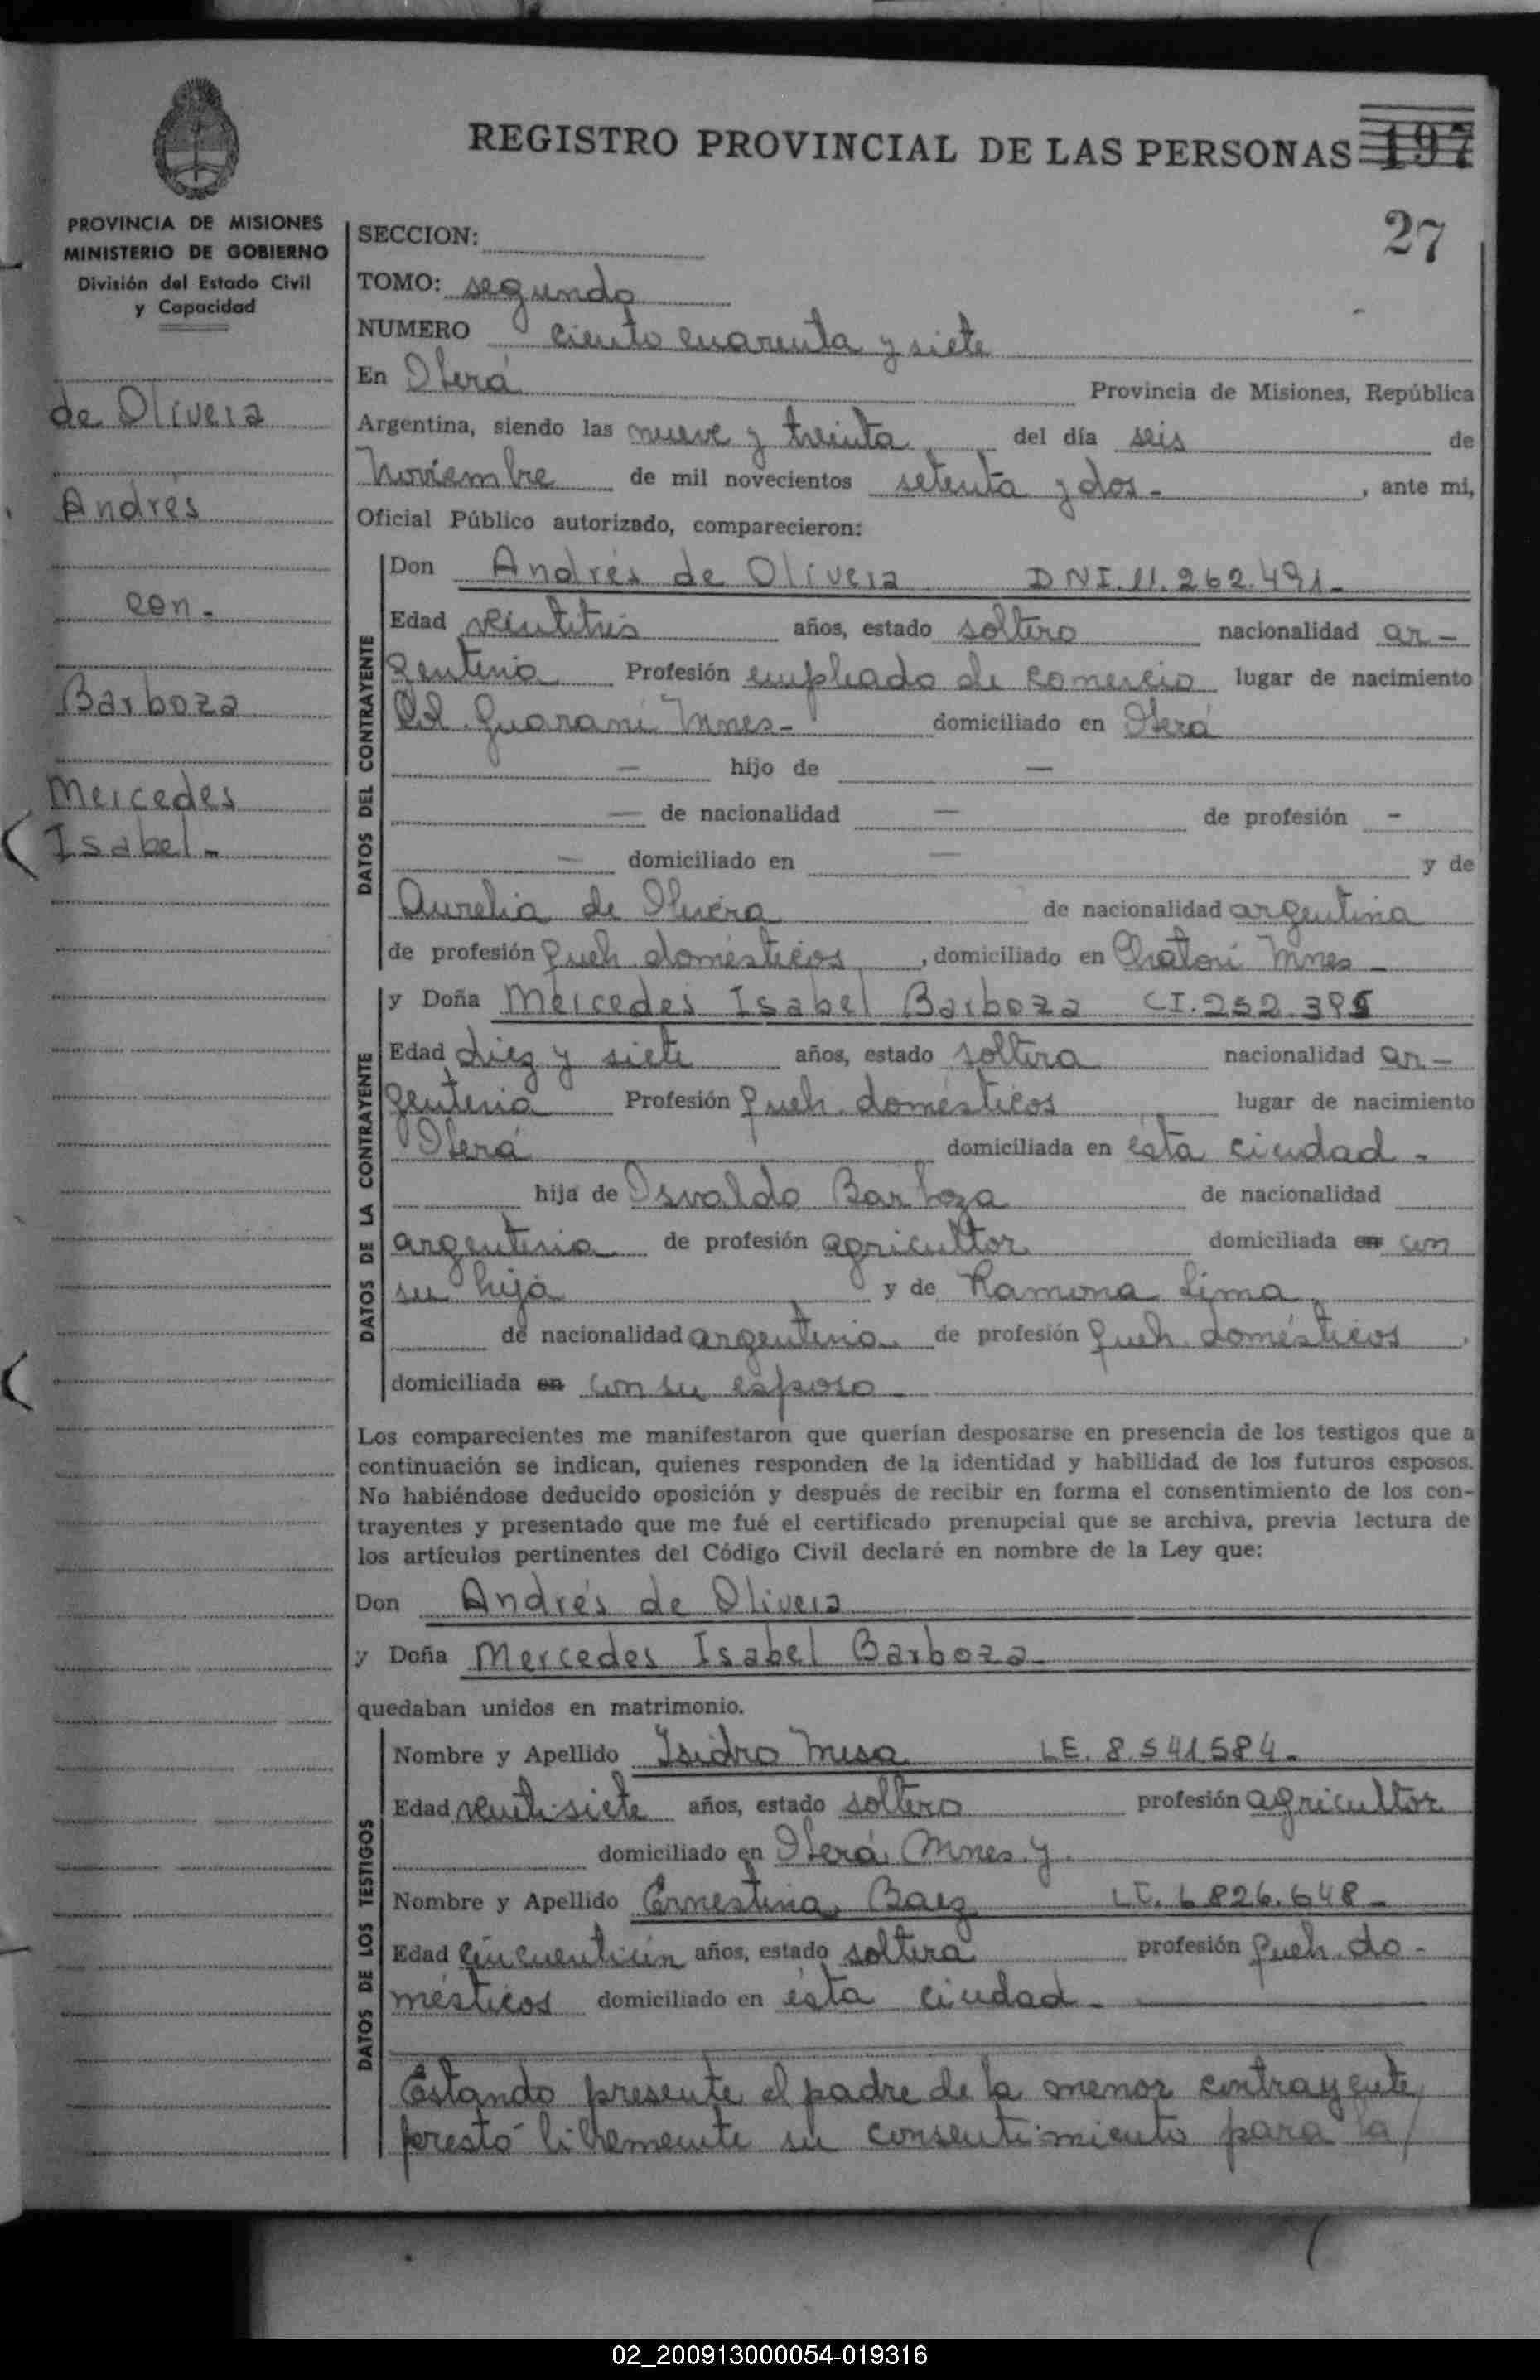 REGISTRO PROVINCIAL DE LAS PERSONAS 197
27
PROVINCIA DE MISIONES
MINISTERIO DE GOBIERNO
División del Estado Civil
y Capacidad
de Olivera
Andrés
con-
Barboza
Mercedes
Isabel-
SECCION:
TOMO: segundo
NUMERO ciento cuarenta y siete
En Oberá Provincia de Misiones, República
Argentina, siendo las nueve y treinta del día seis de
Noviembre de mil novecientos setenta y dos- , ante mi,
Oficial Público autorizado, comparecieron:
DATOS DEL CONTRAYENTE
Don Andrés de Olivera DNI. 11.262.491-
Edad veintitrés años, estado soltero nacionalidad ar-
gentina Profesión empleado de comercio lugar de nacimiento
Guaraní Mnes- domiciliado en Oberá
— hijo de —
— de nacionalidad — de profesión -
— domiciliado en — y de
Aurelia de Olivera de nacionalidad argentina
de profesión queh. domésticos , domiciliado en Mnes-
DATOS DE LA CONTRAYENTE
y Doña Mercedes Isabel Barboza CI. 252.395
Edad diez y siete años, estado soltera nacionalidad ar-
gentina Profesión queh. domésticos lugar de nacimiento
Oberá domiciliada en ésta ciudad -
hija de Osvaldo Barboza de nacionalidad
argentina de profesión agricultor domiciliada en con
su hija y de Ramona Lima
de nacionalidad argentina de profesión queh. domésticos ,
domiciliada en con su esposo
Los comparecientes me manifestaron que querían desposarse en presencia de los testigos que a
continuación se indican, quienes responden de la identidad y habilidad de los futuros esposos.
No habiéndose deducido oposición y después de recibir en forma el consentimiento de los con-
trayentes y presentado que me fué el certificado prenupcial que se archiva, previa lectura de
los artículos pertinentes del Código Civil declaré en nombre de la Ley que:
Don Andrés de Olivera
y Doña Mercedes Isabel Barboza
quedaban unidos en matrimonio.
DATOS DE LOS TESTIGOS
Nombre y Apellido Isidro Musa LE. 8.541.584-
Edad veintisiete años, estado soltero profesión agricultor
domiciliado en Oberá, Mnes y
Nombre y Apellido Ernestina Baez LC. 6.826.648-
Edad cincuentiún años, estado soltera profesión queh. do-
mésticos domiciliado en ésta ciudad-
Estando presente el padre de la menor contrayente
prestó libremente su consentimiento para la/
02_200913000054-019316